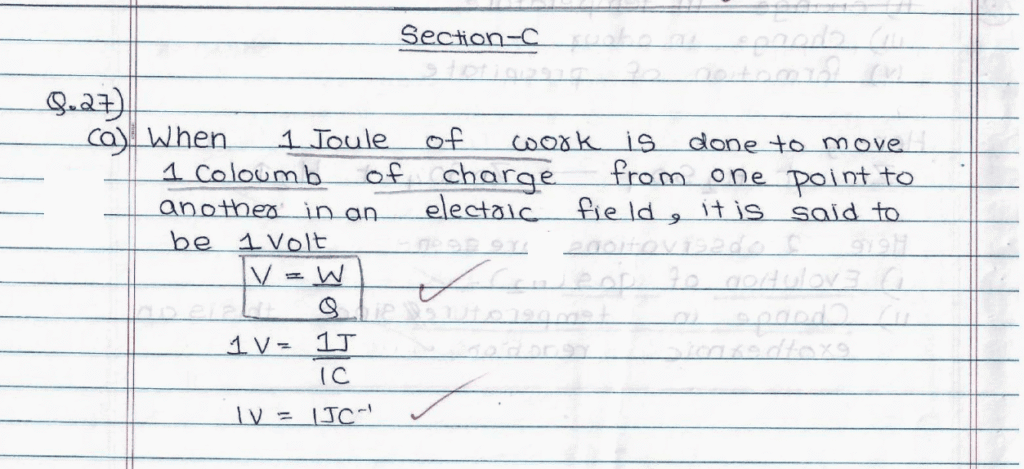 Section-C
Q.27)
(a) When 1 Joule of work is done to move
1 Coloumb of charge from one point to
another in an electric field, it is said to
be 1 Volt
V = W
Q
1V = 1J
1C
1V = 1JC⁻¹